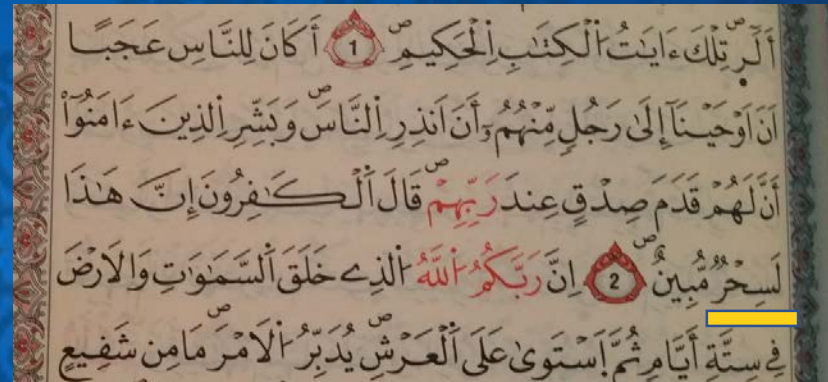 أَلَٓرۖ تِلْكَ ءَايَٰتُ اُ۬لْكِتَٰبِ اِ۬لْحَكِيمِۖ 1 أَكَانَ لِلنَّاسِ عَجَباً
اَنَ اَوْحَيْنَآ إِلَىٰ رَجُلٖ مِّنْهُمُۥٓ أَنَ اَنذِرِ اِ۬لنَّاسَۖ وَبَشِّرِ اِ۬لذِينَ ءَامَنُوٓاْ
أَنَّ لَهُمْ قَدَمَ صِدْقٍ عِندَ رَبِّهِمْۖ قَالَ اَ۬لْكَٰفِرُونَ إِنَّ هَٰذَا
لَسِحْرٞ مُّبِينٌۖ 2 اِنَّ رَبَّكُمُ اُ۬للَّهُ اُ۬لذِے خَلَقَ اَ۬لسَّمَٰوَٰتِ وَالَارْضَ
فِے سِتَّةِ أَيَّامٖ ثُمَّ اَ۪سْتَوَىٰ عَلَى اَ۬لْعَرْشِۖ يُدَبِّرُ اُ۬لَامْرَۖ مَا مِن شَفِيعٍ